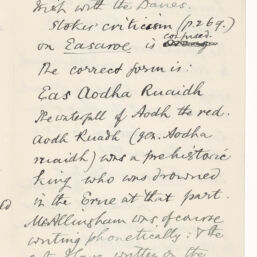 Irish with the Danes.
Stoker criticism (p. 269.)
confused.
on Easaroe is
The correct form is:
Eas Aodha Ruaidh
The waterfall of Aodh the red.
Aodh Ruadh (gen. Aodha
ruaidh) was a prehistoric
king who was drowned
in the Erne at that part.
McAllingham was of course
writing phonetically: & the